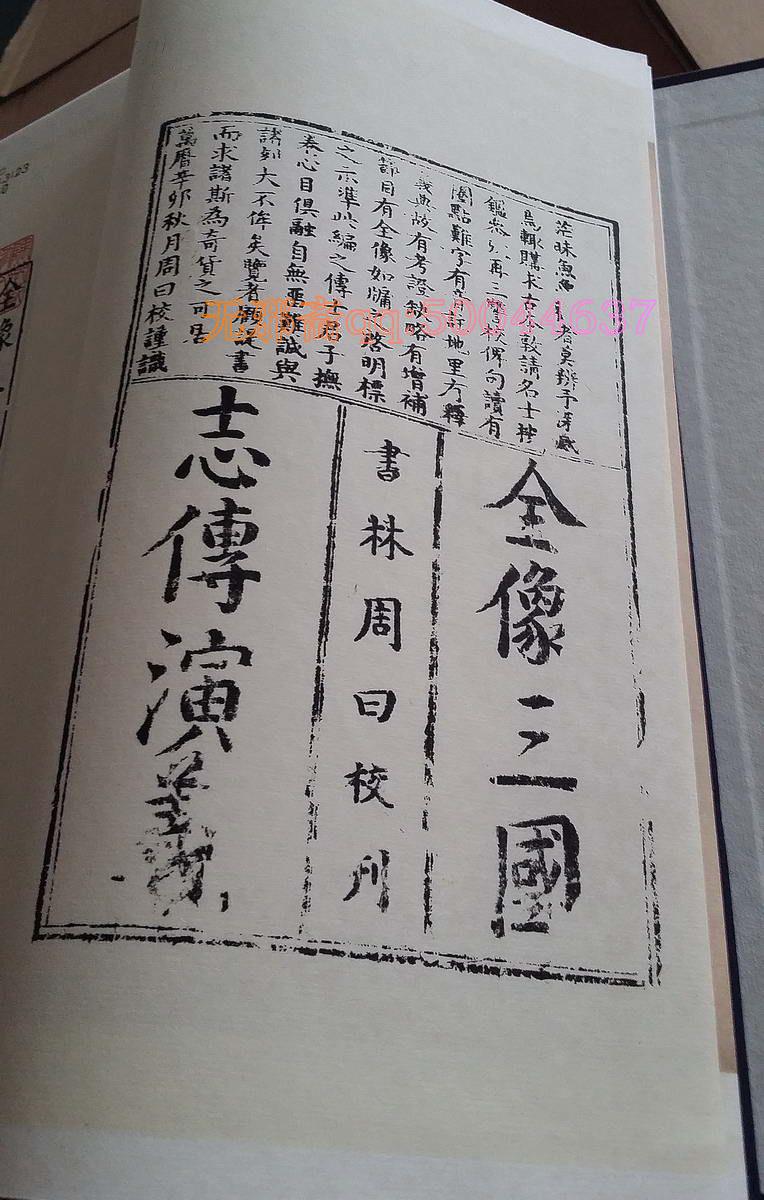 茫昧魚者莫辨予深憾
焉輒購求古本敦請名士按
鑑參考再三讎校俾句讀有
圈點難字有音註地里有釋
義典故有考證缺略有增補
節目有全像如牖之啓明標
之示準此編之傳士君子撫
卷心目俱融自無難誠與
諸刻大不侔矣覽者顧諟書
而求諸斯為奇貨之可居
萬曆辛卯秋月周曰校謹識
全像三國
書林周曰校刊
志傳演義
无邪斋qq:50044637
全像